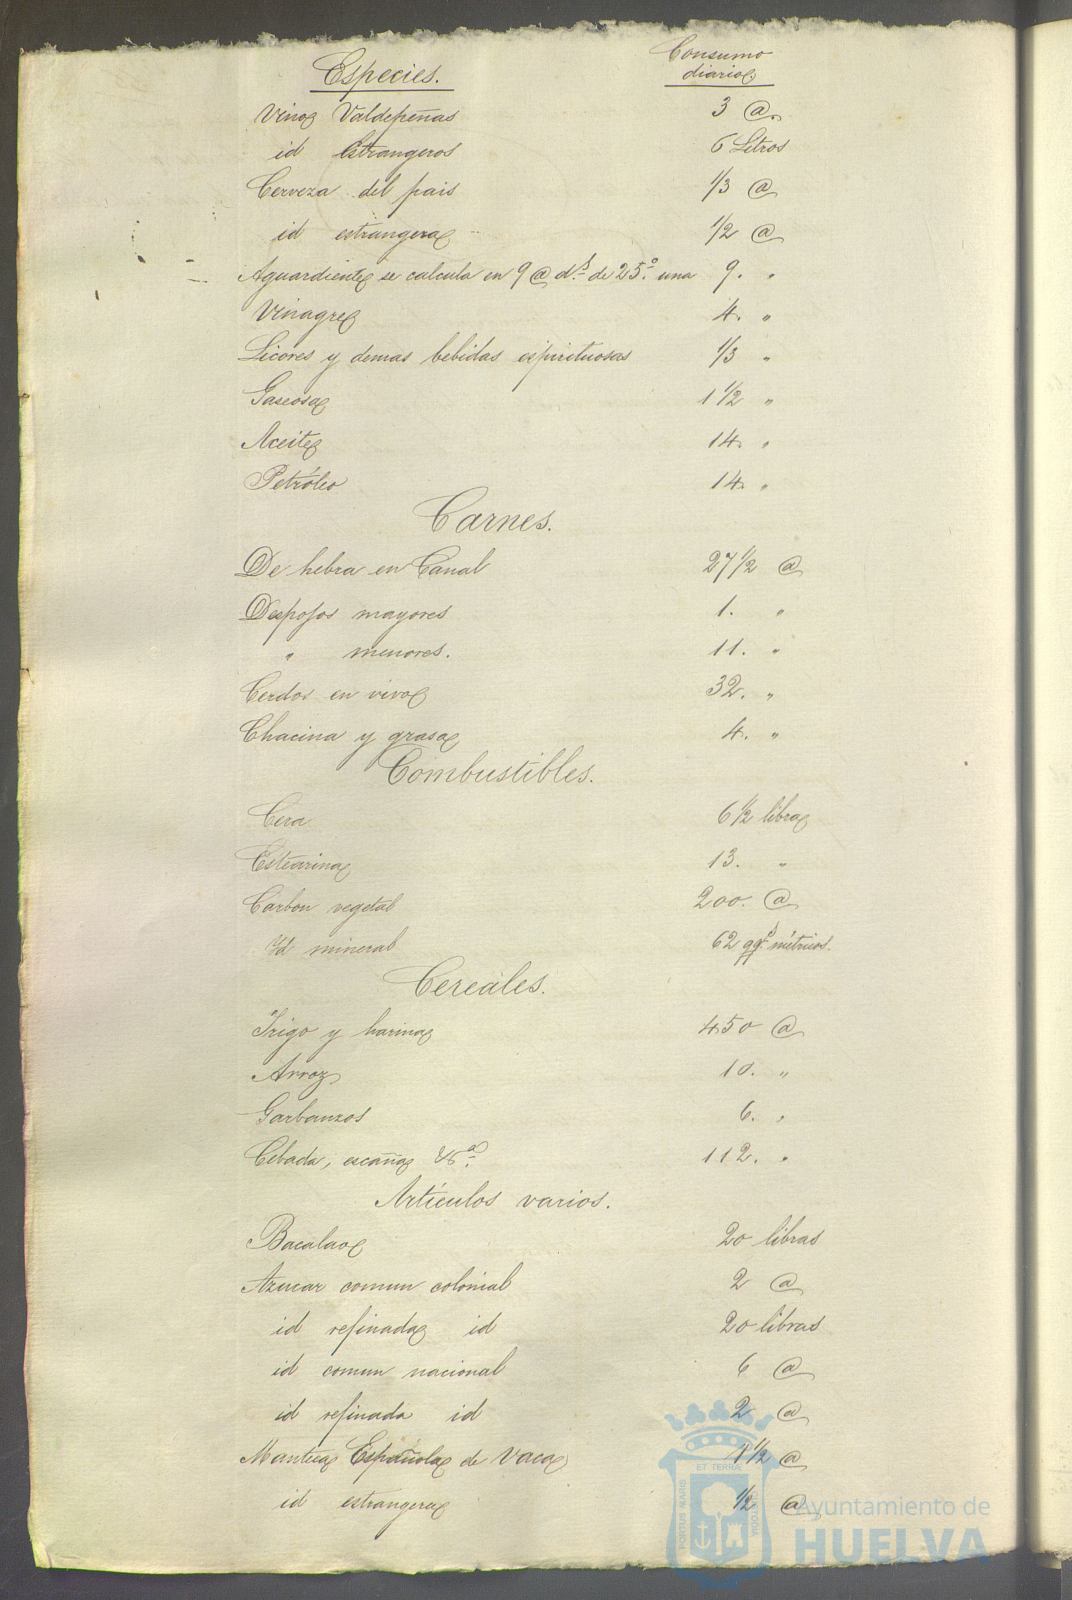 Especies. Consumo diario
Vino Valdepeñas 3 @.
id estrangeros 6 Litros
Cerveza del pais 1/3 @
id estrangera 1/2 @
Aguardiente se calcula en 9 @ d.s de 25.o una 9. "
Vinagre 4. "
Licores y demas bebidas espirituosas 1/3 "
Gaseosa 1 1/2 "
Aceite 14. "
Petróleo 14. "
Carnes.
De hebra en Canal 27 1/2 @
Despojos mayores 1. "
" menores. 11. "
Cerdos en vivo 32. "
Chacina y grasa 4. "
Combustibles.
Cera 6 1/2 libra
Estearina 13. "
Carbon vegetal 200. @
Yd mineral 62 qq.s métricos.
Cereales.
Trigo y harina 450 @
Arroz 10. "
Garbanzos 6. "
Cebada, escaña &.a 112. "
Artículos varios.
Bacalao 20 libras
Azucar comun colonial 2 @
id refinada id 20 libras
id comun nacional 6 @
id refinada id 2 @
Manteca Española de Vaca 1 1/2 @
id estrangera 1/2 @
ET TERRAE
PORTUS MARIS
CUSTODIA
Ayuntamiento de
HUELVA